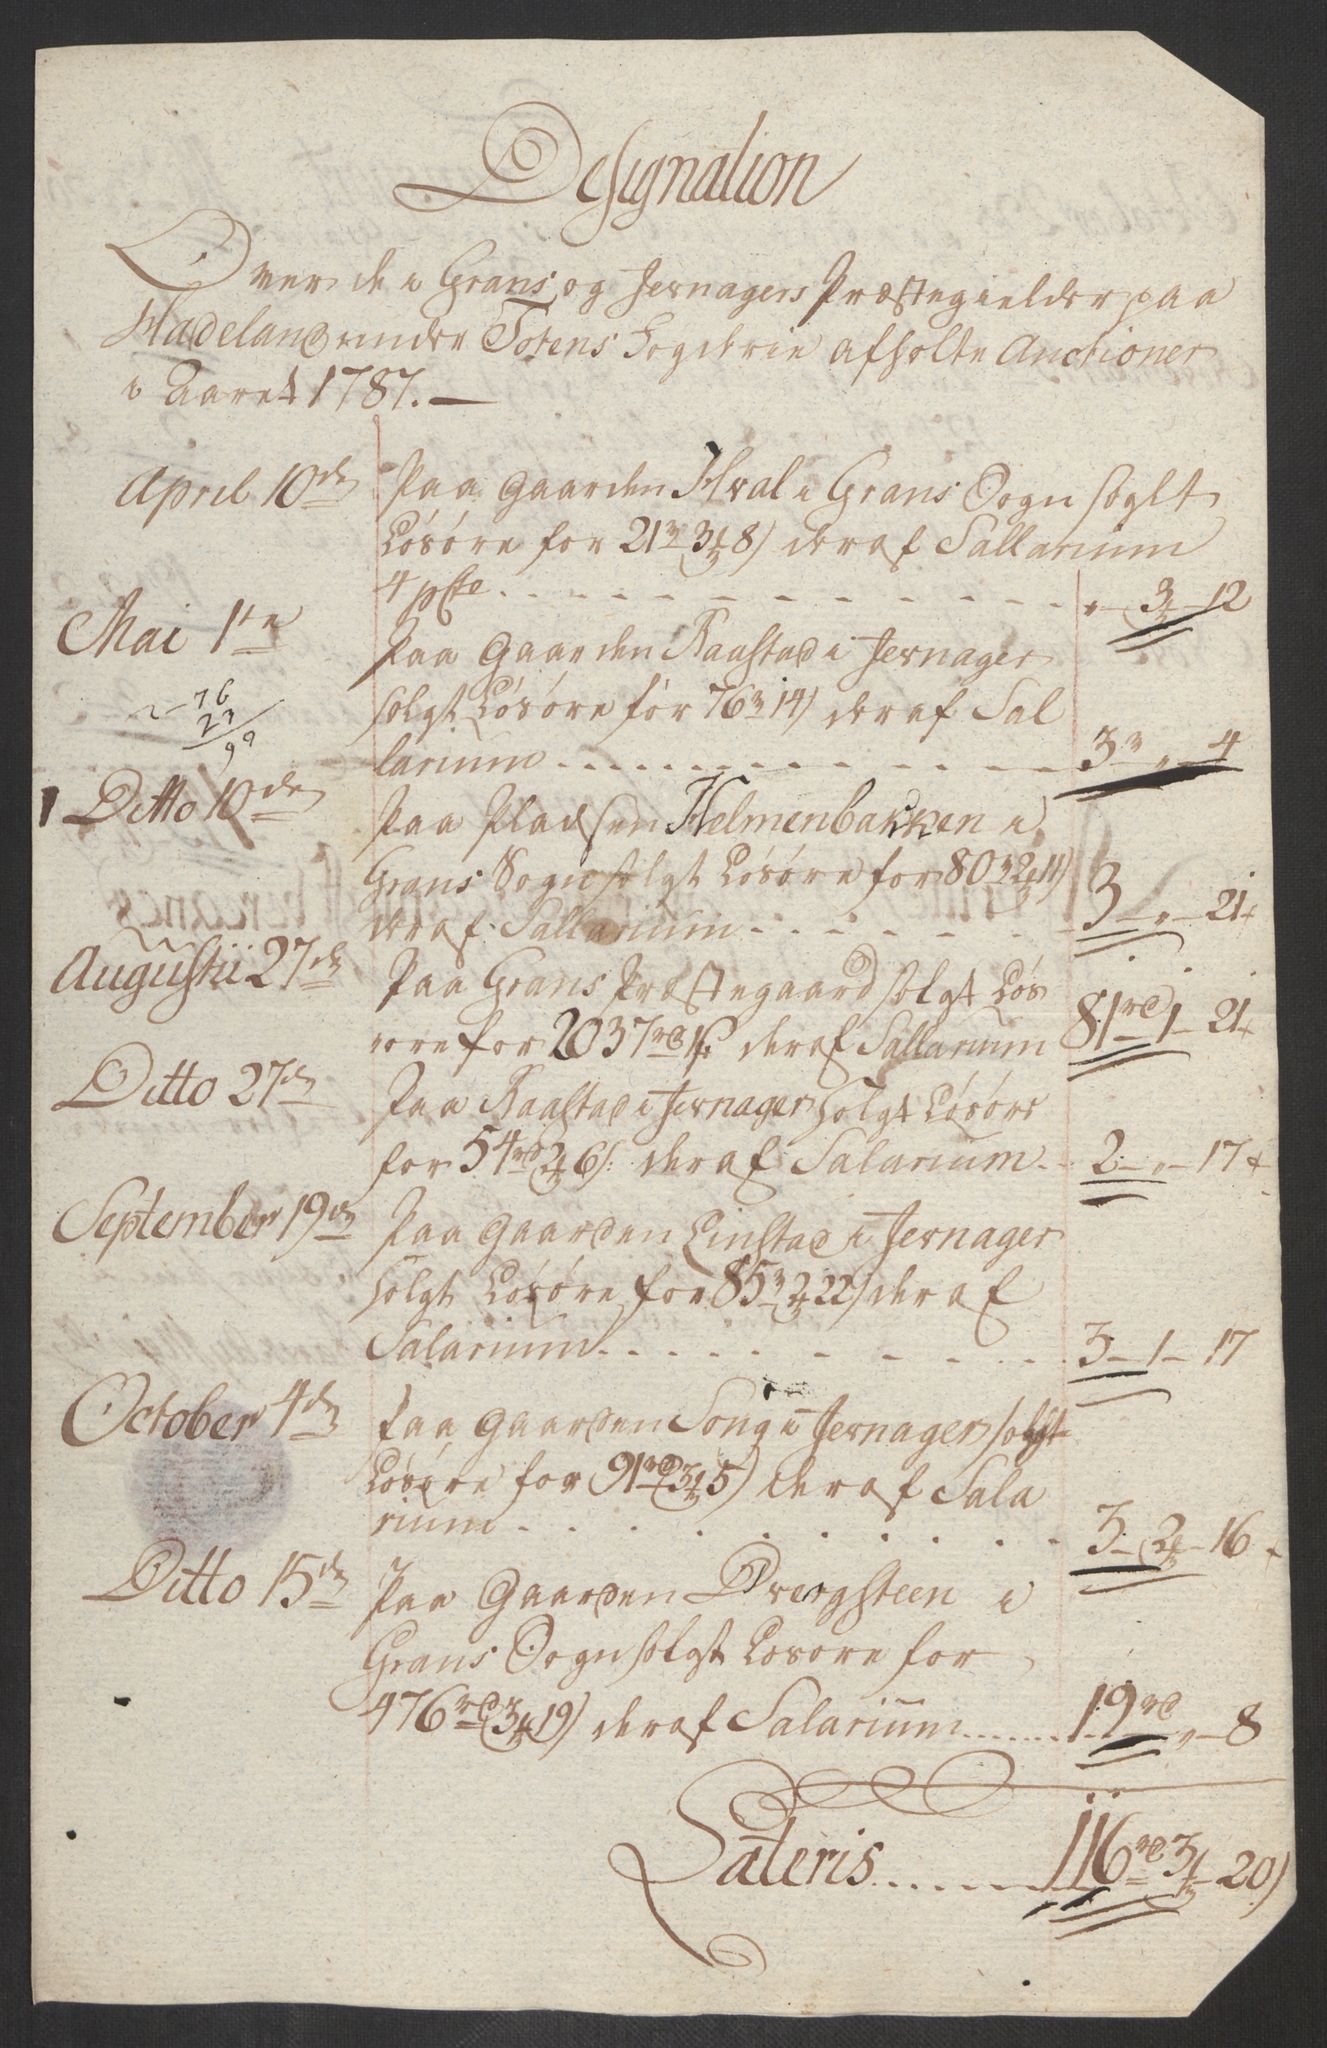 Designation
Over de i Grans og Jevnagers Præstegielder paa
Hadeland under Totens Fogderie afholte Auctioner
i Aaret 1787. —
April 10de Paa Gaarden Hval i Grans Sogn soglt
Løsøre for 21 rd 3 8) deraf Sallarium
4 pCto . . . . . . . . . . . . „ – 3 – 12
Mai 1te
Paa Gaarden Raastad i Jevnager
solgt Løsøre for 76 rd 14) deraf Sal
2 – 76
23
99
larium . . . . . . . . . . 3 rd „ – 4
Ditto 10de
Paa Pladsen Helmenbakken i
Grans Sogn solgt Løsøre for 80 rd 2 11)
deraf Sallarium . . . . . . . . 3 – „ – 21 +
Augustii 27de
Paa Grans Præstegaard solgt Løs
øre for 2037 rd 1 s: deraf Sallarium 81 rd 1 – 21 +
Ditto 27de
Paa Raastad i Jevnager solgt Løsøre
for 54 rd 2 6 s: deraf Salarium . . 2 – „ – 17 +
September 19de
Paa Gaarden Linstad i Jevnager
solgt Løsøre for 85 rd 2 22) deraf
Salarium . . . . . . . . . 3 – 1 – 17
October 4de
Paa Gaarden Song i Jevnager solgt
Løsøre for 91 rd 3 5) deraf Sala
rium . . . . . . . . . . 3 – 2 – 16 +
Ditto 15de
Paa Gaarden Dvergsteen i
Grans Sogn solgt Løsøre for
476 rd 3 19) deraf Salarium . . . . . . 19 rd „ – 8
Lateris . . . . . . . 116 rd 3 – 20)